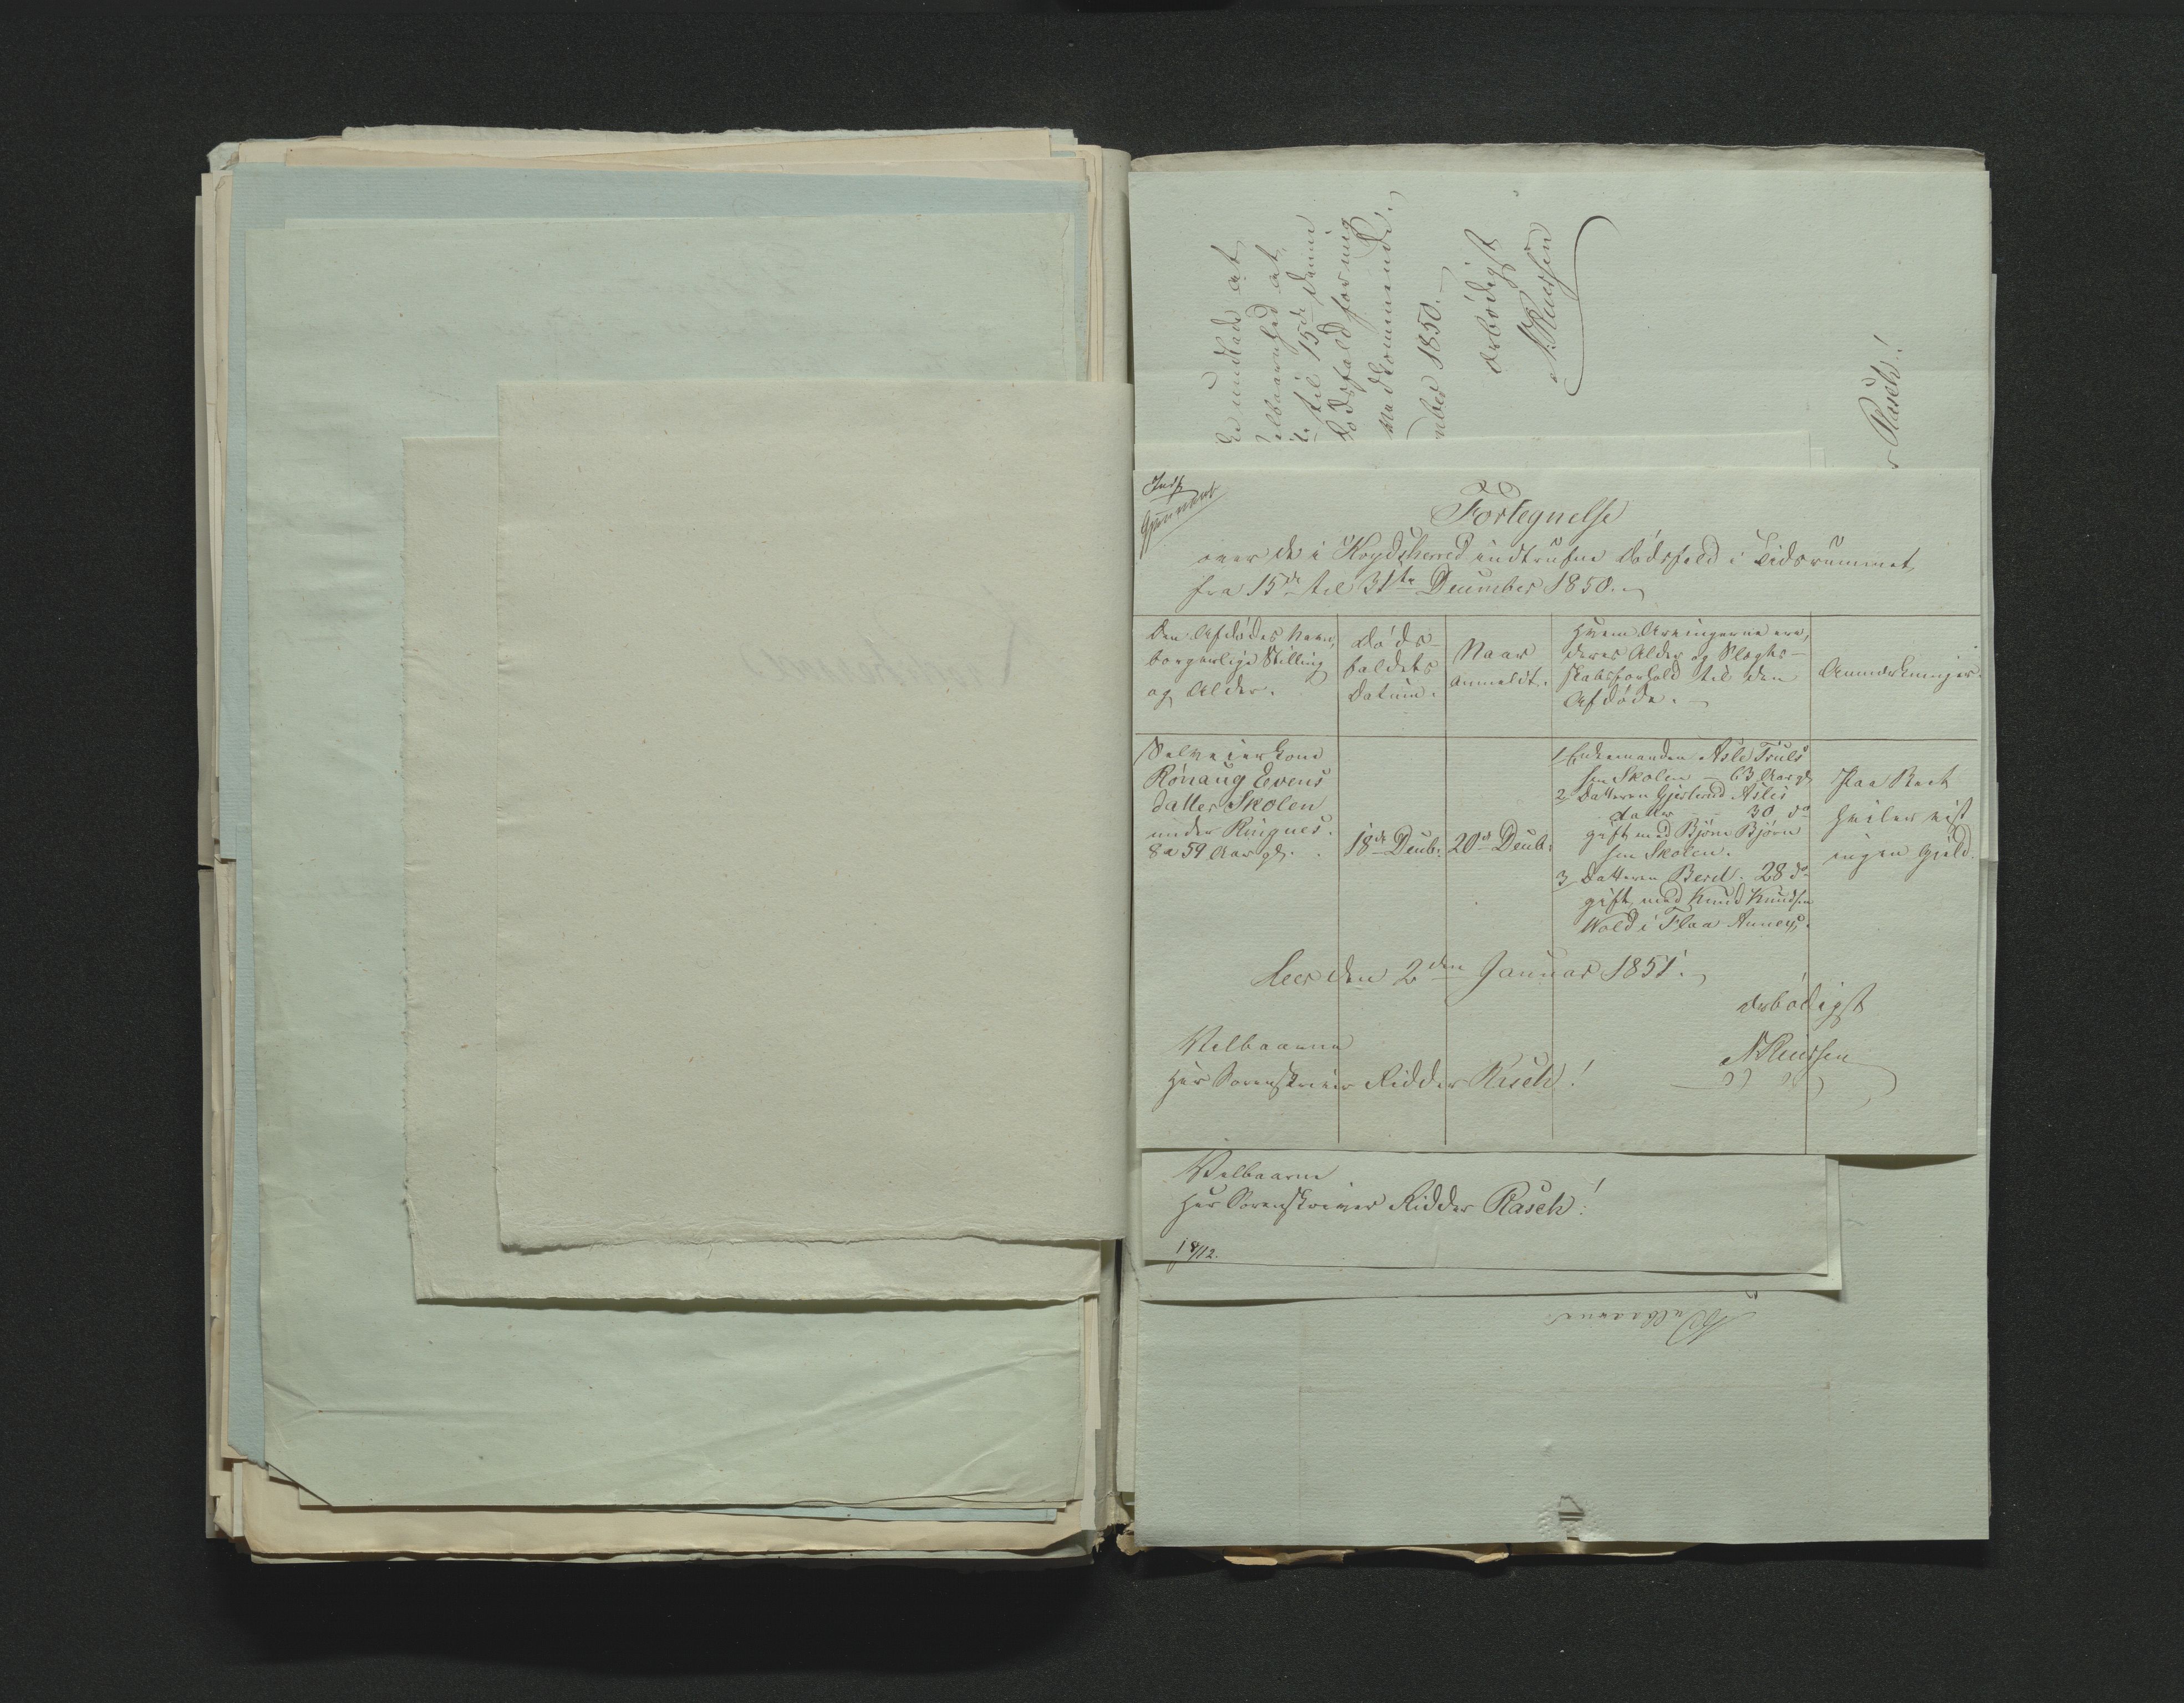 undlade at
elbaarnhed at,
til 15de dennes
Dødsfald for mig
vedkommende.
mber 1850.
ærbødigst
NRuussen
Rasch!
Indf.
Fortegnelse
over de i Krydsherred indtrufne Dødsfald i Tidsrummet
fra 15de til 31te December 1850.
Den Afdødes Navn,
borgerlige Stilling
og Alder.
Døds-
faldets
Datum.
Naar
anmeldt.
Hvem Arvingerne ere,
deres Alder og Slægts-
skabsforhold til den
Afdøde.
Anmærkninger.
Selveierkone
Rónaug Evens
datter Skolen
under Ringnes.
59 Aar gl.
18de Decbr.
20de Decbr.
1, Enkemanden Asle Truls
sen Skolen - 63 Aar gl.
2, Datteren Gjertrud Aslis
datter - 30 do
gift med Bjørn Bjørn
sen Skolen.
3, Datteren Berel. 28 do
gift med Knud Knudsen
Wold i Flaa Annex.
Paa Boet
hviler vist
ingen Gjeld.
den 2den Januar 1851.
ærbødigst
NRuussen
Velbaarne
Herr Sorenskriver Ridder Rasch!
Velbaarne
Herr Sorenskriver Ridder Rasch!
18/12.
Velbaarne